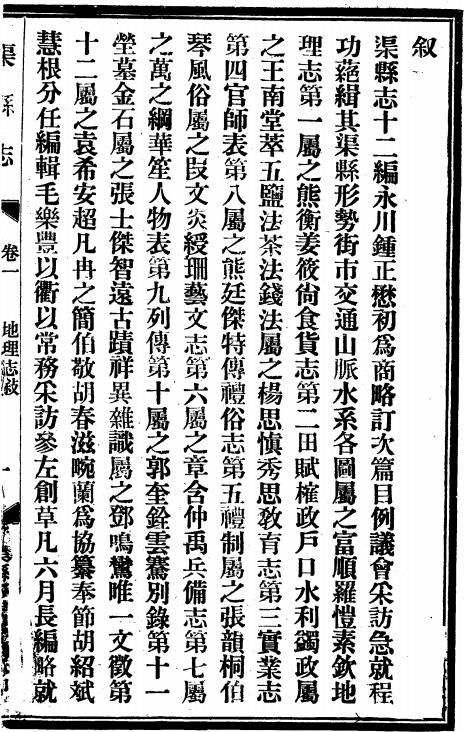 叙
渠縣志十二編永川鍾正懋初爲商略訂次篇目例議會采訪急就程
功蒞緝其渠縣形勢街市交通山脈水系各圖屬之富順羅愷素欽地
理志第一屬之熊衡姜筱尙食貨志第二田賦榷政戶口水利蠲政屬
之王南堂萃五鹽法茶法錢法屬之楊思慎秀思教育志第三實業志
第四官師表第八屬之熊廷傑特傳禮俗志第五禮制屬之張韻桐伯
琴風俗屬之段文炎綬珊藝文志第六屬之章含仲禹兵備志第七屬
之萬之綱華笙人物表第九列傳第十屬之郭奎銓雲騫別錄第十一
塋墓金石屬之張士傑智遠古蹟祥異雜識屬之鄧鳴鸞唯一文徵第
十二屬之袁希安超凡冉之簡伯敬胡春滋畹蘭爲協纂奉節胡紹斌
慧根分任編輯毛樂豐以衢以常務采訪參左創草凡六月長編略就
渠縣志
卷一
地理志敍
一